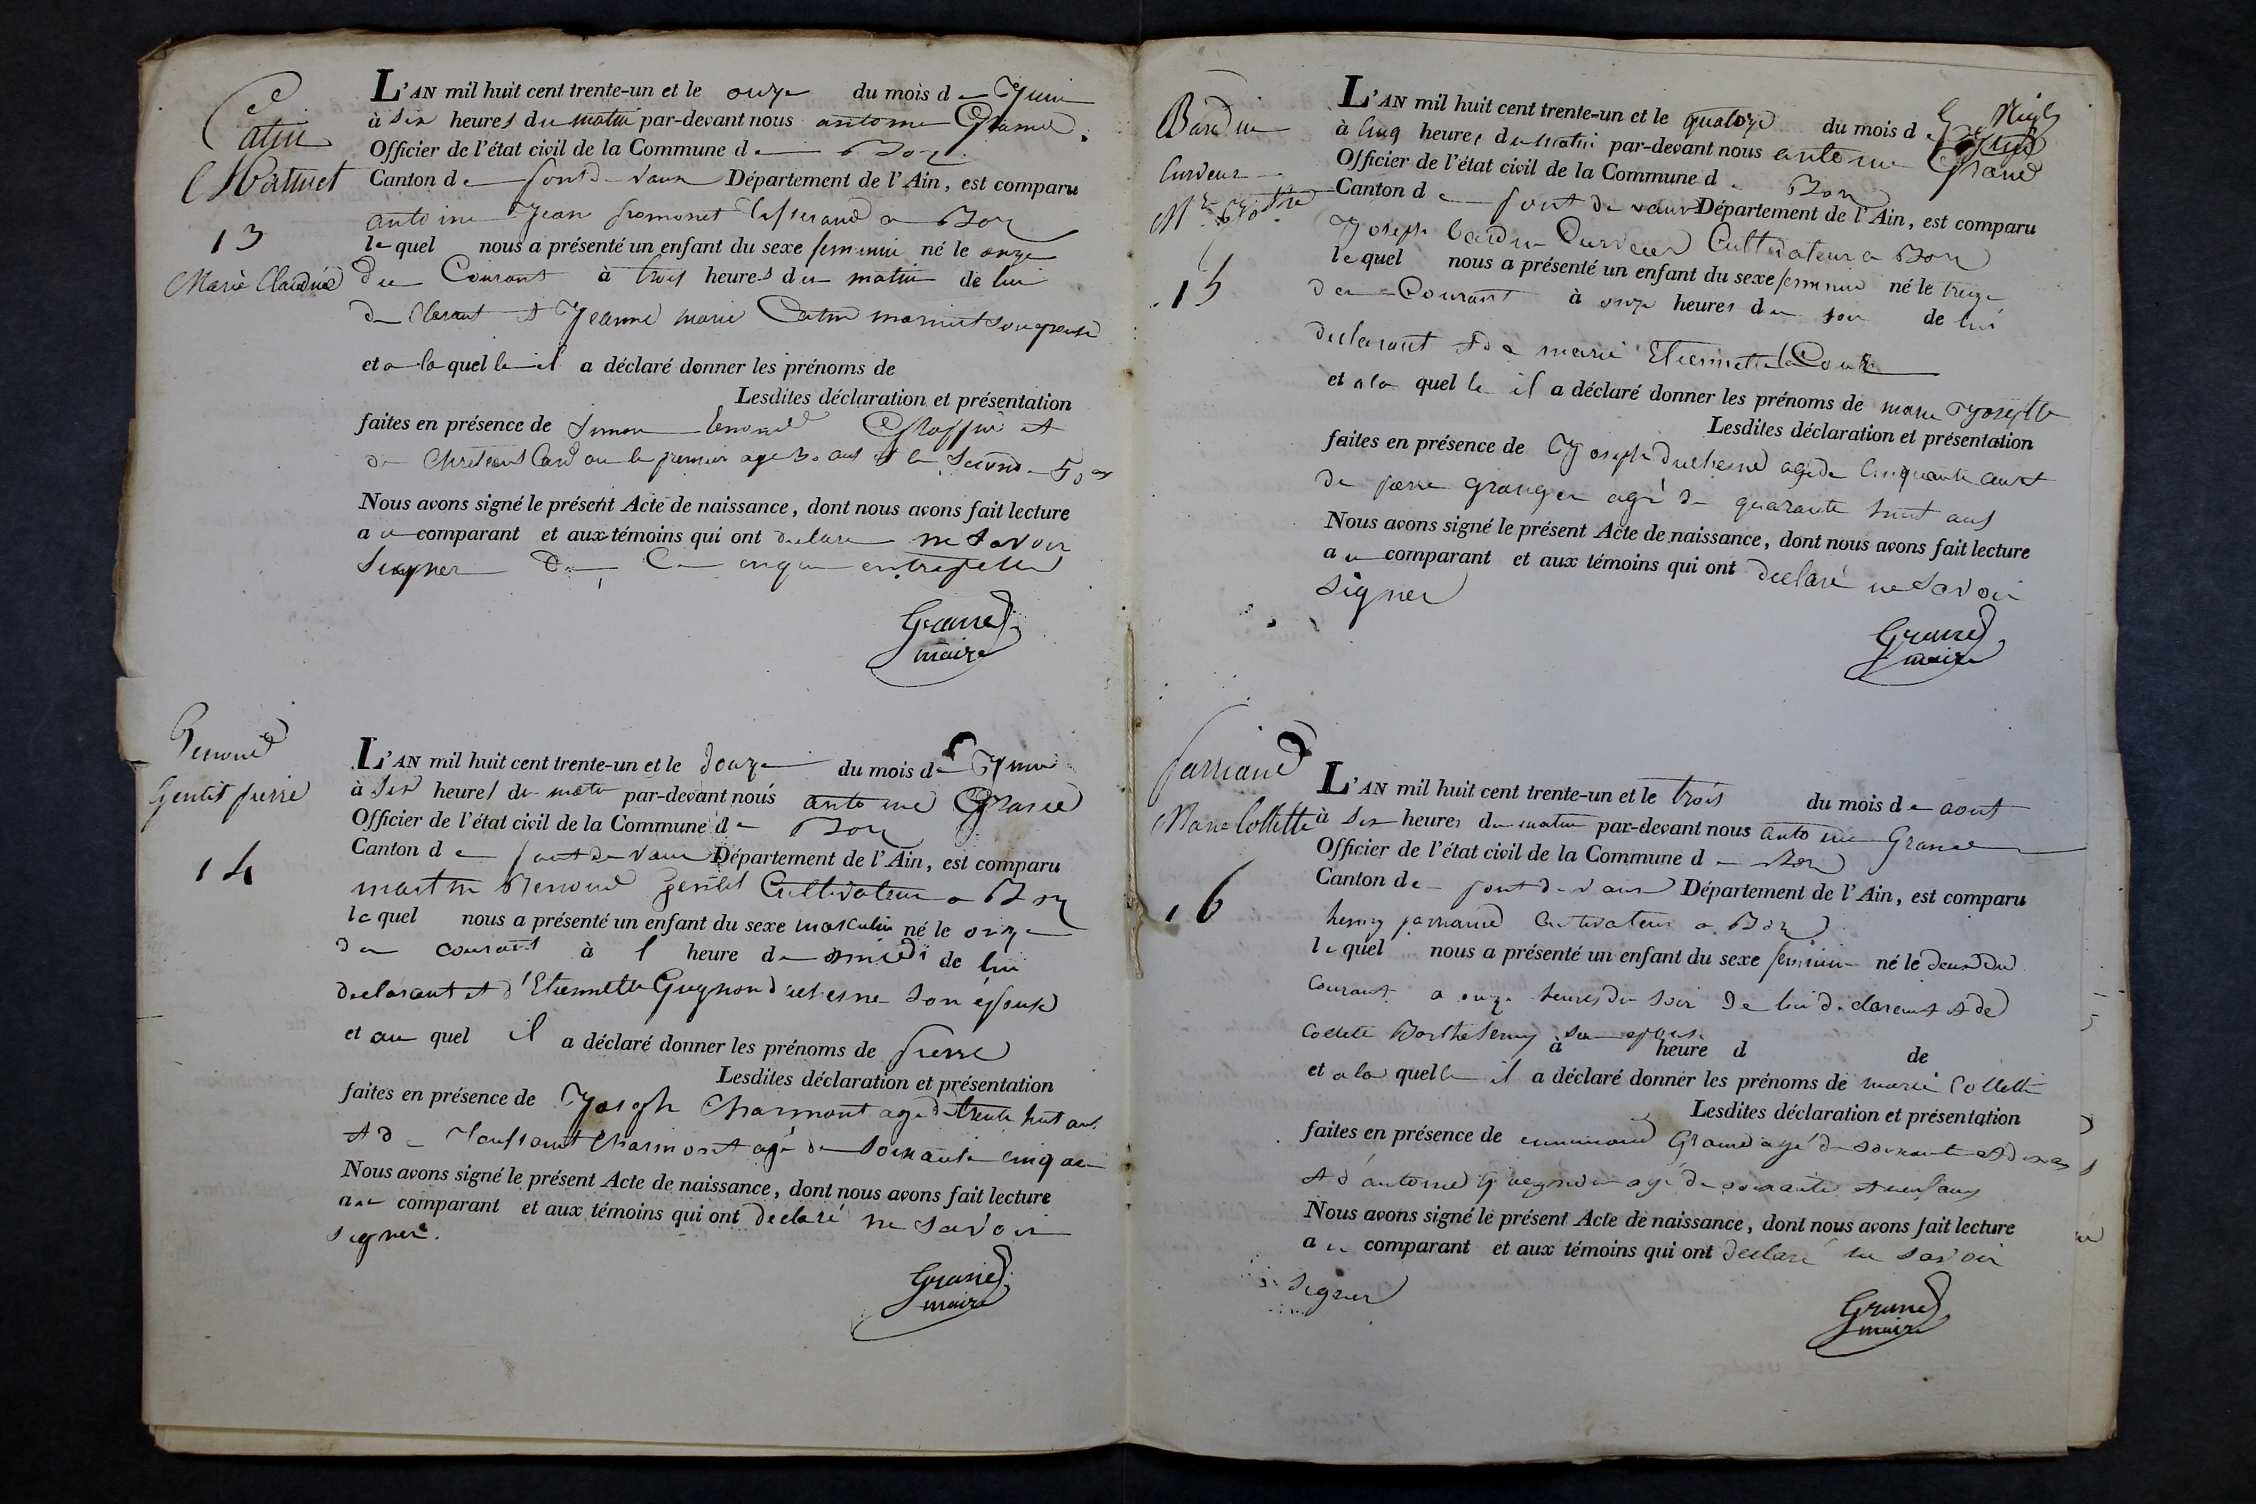 Catin
Marie Claudine
13
L'AN mil huit cent trente-un et le onze du mois de Juin
à six heures du matin par-devant nous antoine Grand
Officier de l'état civil de la Commune de Boz
Canton de pont de vaux Département de l'Ain, est comparu
antoine Jean a Boz
lequel nous a présenté un enfant du sexe feminin né le onze
du Courant à trois heures du matin de lui
declarant et Jeanne marie Catin son epouse
et a laquelle il a déclaré donner les prénoms de
Lesdites déclaration et présentation
faites en présence de Simon et
de le premier age 30 ans et le second 50 ans
Nous avons signé le présent Acte de naissance, dont nous avons fait lecture
au comparant et aux témoins qui ont declare ne savoir
Signer
Grand
maire
Renoud
Gentit pierre
14
L'AN mil huit cent trente-un et le douze du mois de Juin
à six heures du matin par-devant nous antoine Grand
Officier de l'état civil de la Commune de Boz
Canton de pont de vaux Département de l'Ain, est comparu
martin Renoud gentit Cultivateur a Boz
lequel nous a présenté un enfant du sexe masculin né le onze
du courant à 1 heure de midi de lui
declarant et d'Etiennette Guygnon duchesne son épouse
et au quel il a déclaré donner les prénoms de pierre
Lesdites déclaration et présentation
faites en présence de Joseph Charmont agé de trente huit ans
et de Toussaint Charmont agé de soixante cinq ans
Nous avons signé le présent Acte de naissance, dont nous avons fait lecture
au comparant et aux témoins qui ont declaré ne savoir
signer.
Grand
maire
Bardin
Curveur
15
L'AN mil huit cent trente-un et le quatorze du mois de
à cinq heures du matin par-devant nous antoine Grand
Officier de l'état civil de la Commune de Boz
Canton de pont de vaux Département de l'Ain, est comparu
Joseph bardin Curveur Cultivateur a Boz
lequel nous a présenté un enfant du sexe feminin né le treize
du Courant à onze heures du soir de lui
declarant et de marie Etiennette
et a la quelle il a déclaré donner les prénoms de marie Josephte
Lesdites déclaration et présentation
faites en présence de Joseph duchesne agé de cinquante ans et
de pierre granger agé de quarante huit ans
Nous avons signé le présent Acte de naissance, dont nous avons fait lecture
au comparant et aux témoins qui ont declaré ne savoir
signer
Grand
maire
parriaud
Marie Collette
16
L'AN mil huit cent trente-un et le trois du mois de aout
à six heures du matin par-devant nous antoine Grand
Officier de l'état civil de la Commune de Boz
Canton de pont de vaux Département de l'Ain, est comparu
henry parriaud Cultivateur a Boz
lequel nous a présenté un enfant du sexe feminin né le deux du
courant a onze heures du soir de lui declarant et de
Collette Barthelemy son epouse
à heure d de
et a la quelle il a déclaré donner les prénoms de marie Collette
Lesdites déclaration et présentation
faites en présence de Grand agé de soixante et dix ans
et d'antoine agé de soixante et neuf ans
Nous avons signé le présent Acte de naissance, dont nous avons fait lecture
au comparant et aux témoins qui ont declaré ne savoir
signer
Grand
maire